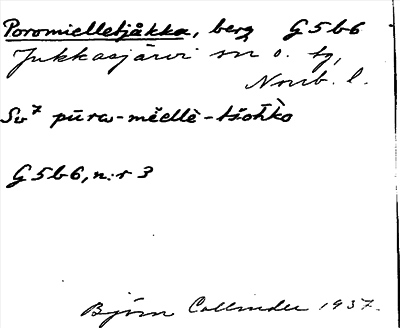 Poromielletjåkka, berg G5b6
Jukkasjärvi sn o. tg,
Norrb. l.
Sv⁷ pūrω-mĕellè-tšoħ̀ko
G5b6, n:r 3
Björn Collinder 1937.